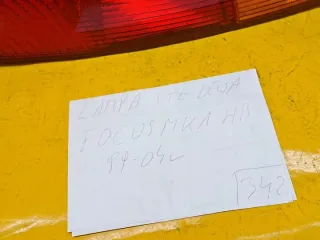 LAMPA TYŁ LEWA
FOCUS MK1 HB
99-04r
342